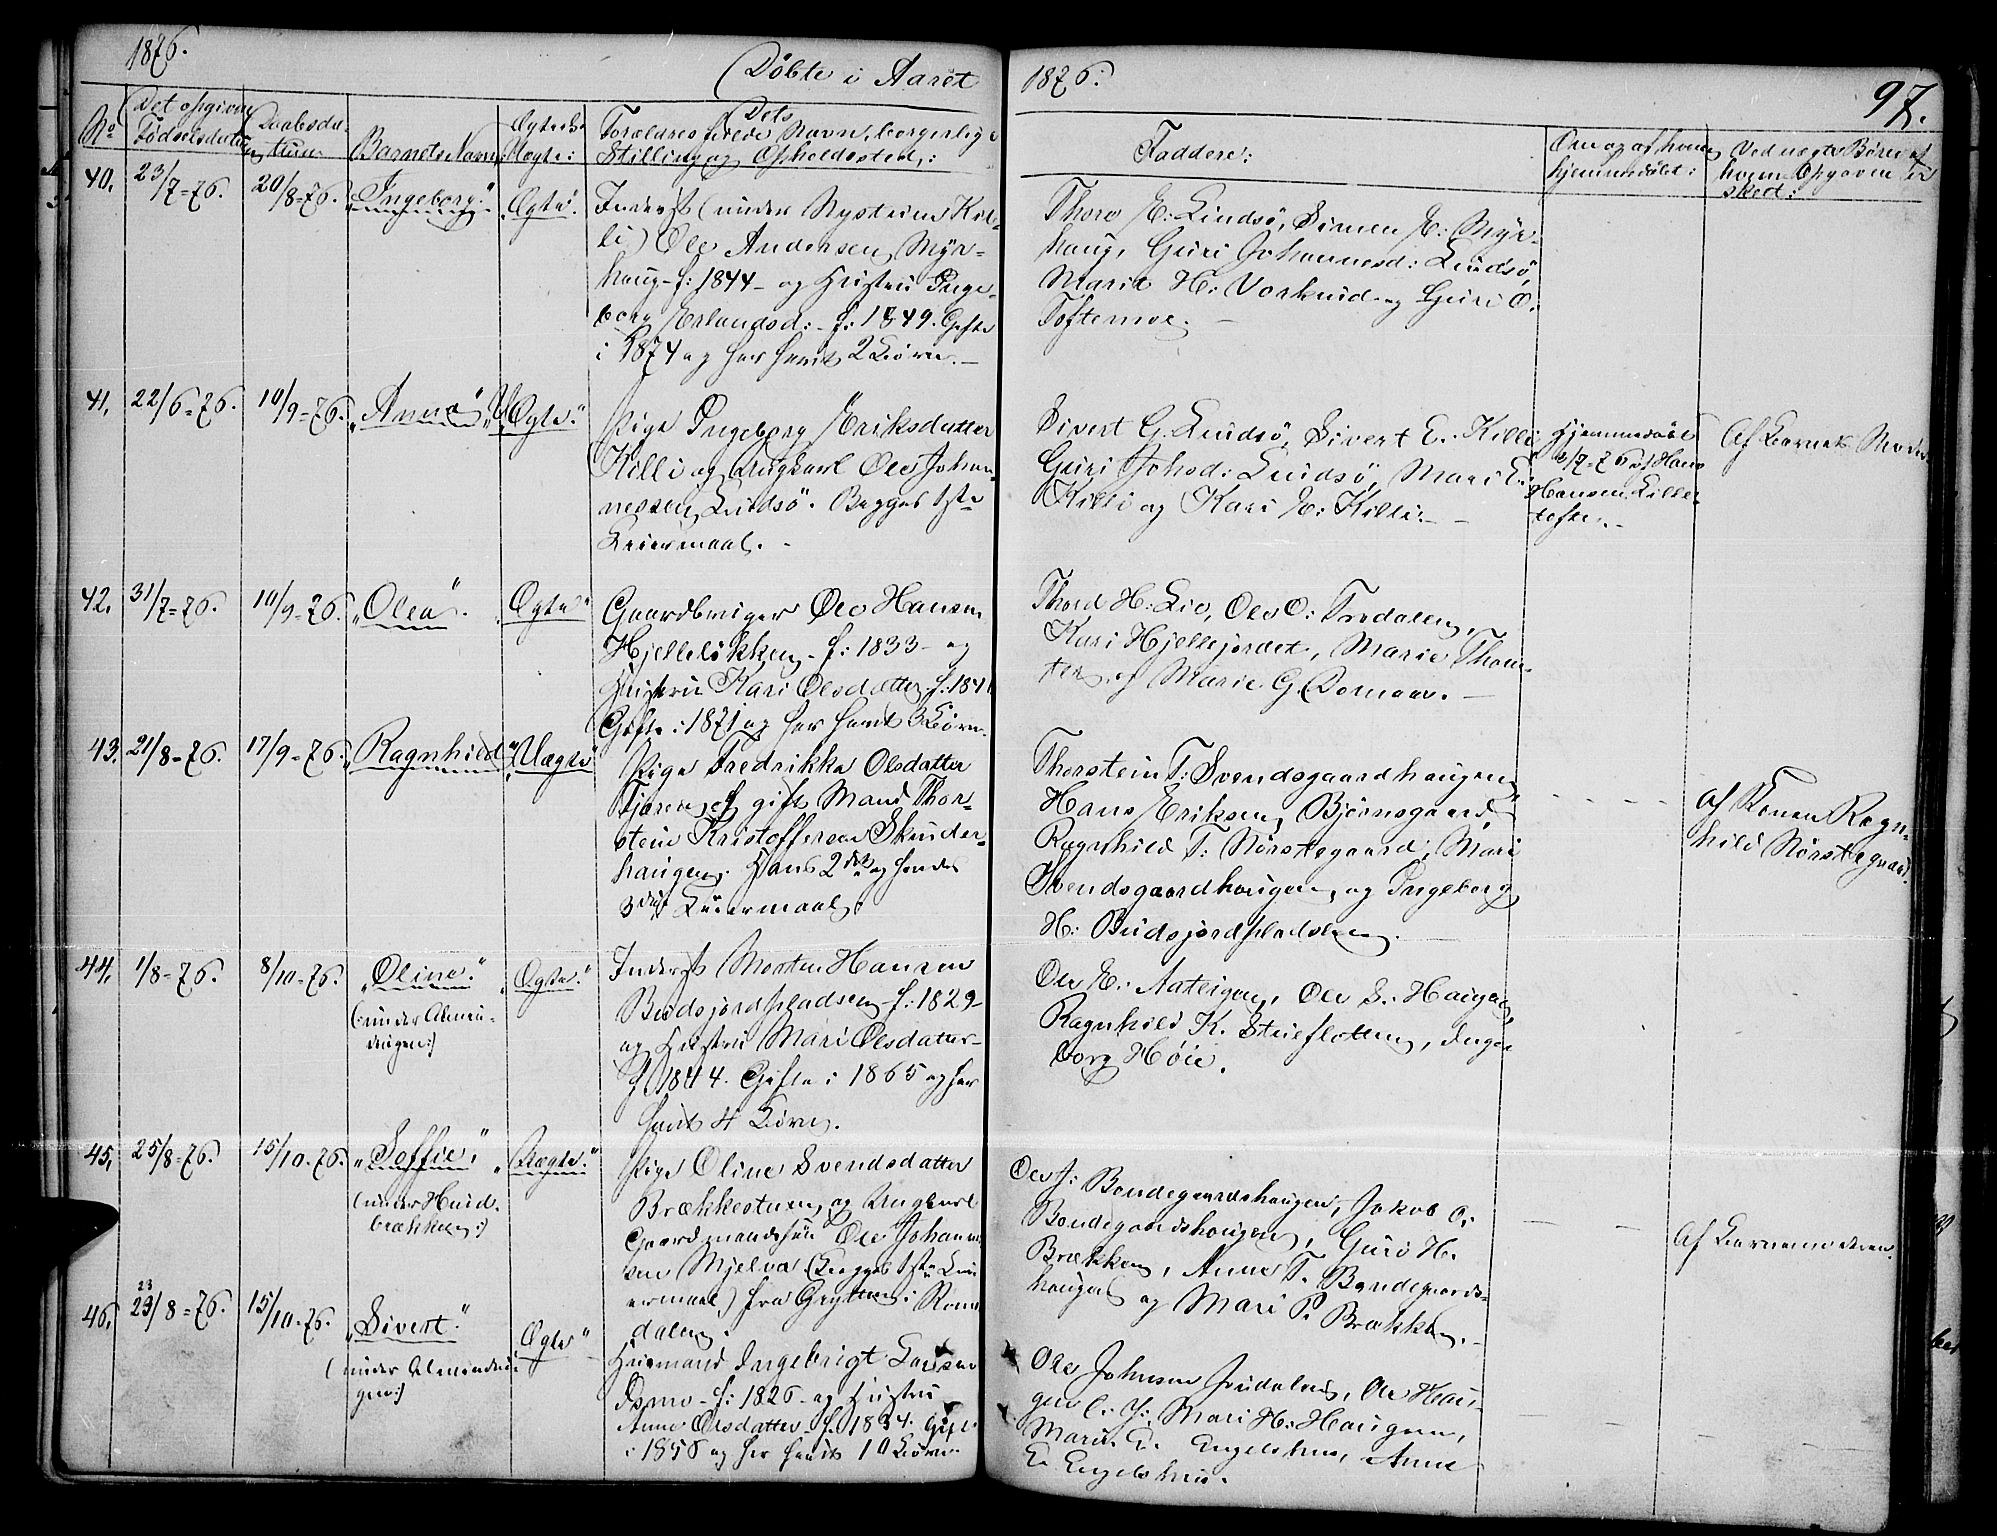 1876.
Døbte i Aaret
1876.
97.
No
Det opgivne
Fødselsdatum
Daabsda-
tum
Barnets Navn:
Ægte eller
Uægte:
Dets
Forældres fulde Navn, borgerlige
Stilling og Opholdssted:
Faddere:
Om og af hvem
hjemmedøbt:
Ved uægte Børn af
hvem Opgaven er
skeet:
40.
23/7-76.
20/8-76.
"Ingeborg."
"Ægte"
Inderst (under Nysteins Kil-
li) Ole Andersen Myr-
haug - f: 1844 - og Hustru Inge-
borg Erlandsd: - f: 1849. Gifte
i 1874 og har havt 2 Børn. -
Thore E: Lindsø, Simen E: Myr-
haug, Guri Johannesd: Lindsø,
Marie H: Vorkind og Guri O.
Toftemoe. -
41.
22/6-76.
10/9-76.
"Anna"
"Uægte"
Pige Ingeborg Eriksdatter
Killi og Ungkarl Ole Johan-
nessen Lindsø. Begges 1ste
Leiermaal. -
Sivert G. Lindsø, Sivert E. Killi
Guri Johsd: Lindsø, Mari E.
Killi og Kari E: Killi. -
Hjemmedøbt
/7-76 af Hans
Hansen Lille-
tofte. -
Af Barnets Moder
42.
31/7-76.
10/9-76.
"Olea".
"Ægte"
Gaardbruger Ole Hansen
Hjelleløkken - f: 1833 - og
Hustru Kari Olsdatter f: 1841
Gifte i 1871 og har havt 3 Børn.
Thord H: Lie, Ole O: Tredalen,
Kari Hjellejordet, Marie Thom-
ter og Marie G. Domaas. -
43.
21/8-76.
17/9-76.
"Ragnhild"
"Uægte"
Pige Fredrikke Olsdatter
Tjøren og gift Mand Thor-
stein Kristoffersen Skuder-
haugen. Hans 2det og hendes
3die Leiermaal.
Thorstein T: Svendsgaardhaugen
Hans Eriksen Bjørnsgaard,
Ragnhild T: Nørstegaard, Mari
Svendsgaardhaugen, og Ingeborg
H: Budsjordpladsen.
Af Konen Ragn-
hild Nørstegaard.
44.
1/8-76.
8/10-76.
"Oline."
(:under Almen-
ningen:)
"Ægte."
Inderst Morten Hansen
Budsjordpladsen - f: 1829
og Hustru Mari Olsdatter -
f 1844. Gifte i 1865 og har
havt 4 Børn.
Ole E. Aateigen, Ole S. Haugen,
Ragnhild K. Stueflotten, Inge-
borg Høie.
45.
25/8-76.
15/10-76.
"Soffie,"
(:under Hund-
brækken:)
"Uægte."
Pige Oline Svendsdatter
Brækkestuen og Ungkarl
Gaardmandssøn Ole Johann-
sen Mjelva (Begges 1ste Lei-
ermaal) fra Grytten i Roms-
dalen.
Ole J: Bondegaardshaugen, Jakob O:
Bondegaardshaugen, Guri H.
Brækken, Anne T. Bondegaards-
haugen og Mari P. Brækken. -
Af Barnemoderen.
46.
23
29/8-76.
15/10-76.
"Sivert."
(under Almennin-
gen:)
"Ægte"
Huusmand Ingebrigt Larsen
Ismo - f: 1826 - og Hustru
Anne Olsdatter f. 1834. Gift
i 1858 og har havt 10 Børn
Ole Johnsen Jondalen, Ole Hau-
gen E: Y:, Mari H: Haugen,
Marit E. Engelshus, Anne
E. Engelshus.